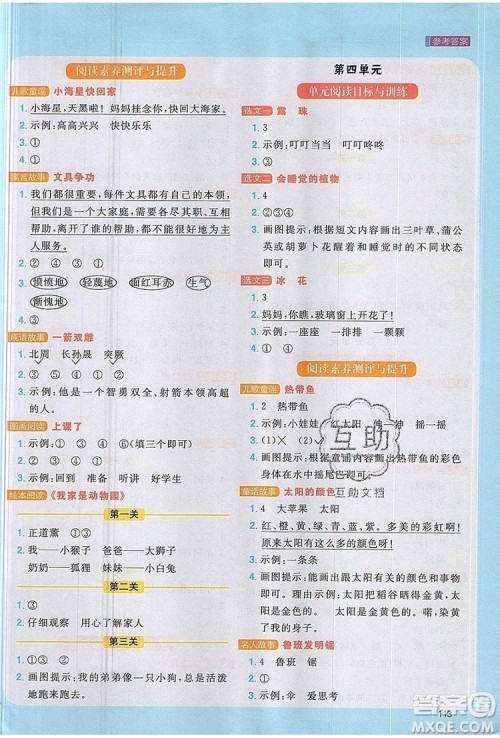 参考答案
阅读素养测评与提升
儿歌童谣 小海星快回家
1. 小海星，天黑啦！妈妈挂念你，快回大海家。
2. 示例：高高兴兴 快快乐乐
3. ①③
寓言故事 文具争功
1. 我们都很重要，每件文具都有自己的本领，
但我们是一个大家庭，需要各尽其职、互相
合作，离开了谁的帮助，我们都不能很好地为主
人服务。
2. ② ④ ① ③
3. 愤愤地 轻蔑地 面红耳赤 生气
惭愧地
4. ①
成语故事 一箭双雕
1. 北周 长孙晟 突厥
2. ① ② ④ ③
3. 示例：他是一个智勇双全、武艺高强的人。
4. ①
图画阅读 上课了
1. 示例：圆圆 教室 语文
2. ③ ① ②
3. 示例：回到 准备 听讲 好学生
绘本阅读 《我家是动物园》
第一关
1. 正道薰 ①③
2. 我——小猴子 爸爸——大狮子
奶奶——狐狸 妹妹——小白兔
第二关
1. ③
2. 仔细观察 用心了解家人
第三关
1. ③ ① ②
2. 示例：我其实是一只小狗，总是活泼
地跑来跑去。
第四单元
单元阅读目标与训练
选文一 露珠
1. 3
2. 示例：叮叮当当 叮叮咚咚
3. ④
选文二 会睡觉的植物
1. ②
2. ①③④
3. 画图提示：根据短文内容画出三叶草、蒲公
英或胡萝卜花醒着和睡觉时的不同状态
即可。
选文三 冰花
1. 4
2. 妈妈，你快来看，玻璃窗上开花了！
3. 示例：一座座 一排排 一颗颗
阅读素养测评与提升
儿歌童谣 热带鱼
1. 2 热带鱼
2. 示例：小娃娃 红太阳 伸一伸 摇一摇
3. (1)× (2)√
4. 画图提示：根据童谣内容画出一条彩色的热带鱼
在水中摇尾巴即可。
童话故事 太阳的颜色
1. 大草原 苹果 大海
2. 红、橙、黄、绿、青、蓝、紫。多美的颜色啊！
原来太阳有这么多的颜色呀！
3. 示例：一条条
4. 示例：围绕跟太阳有关的颜色和事物
即可。如，太阳把稻谷染得金黄，太
阳是金色的。太阳是金黄色的。
名人故事 鲁班发明锯
1. 4 鲁班 锯
2. ①
3. 示例：伞 爱思考
互助
互助文档
答案圈
MXQE.COM